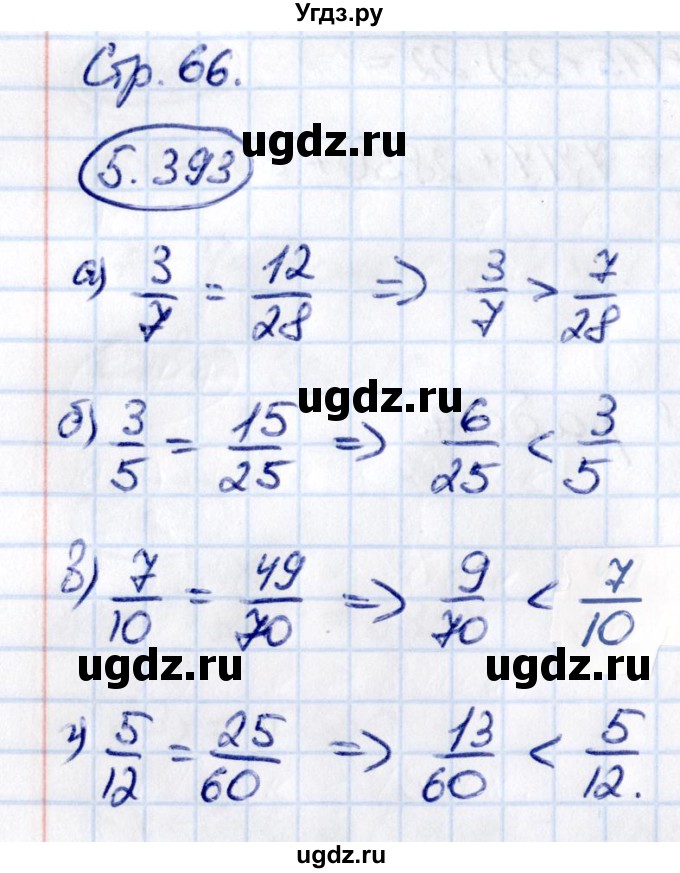 Угдз.ру
Стр. 66.
ugdz.ru
5.393
а) 3/7 = 12/28 => 3/7 > 7/28
ugdz.ru
б) 3/5 = 15/25 => 6/25 < 3/5
в) 7/10 = 49/70 => 9/70 < 7/10
ugdz.ru ugdz.ru
г) 5/12 = 25/60 => 13/60 < 5/12.
ugdz.ru